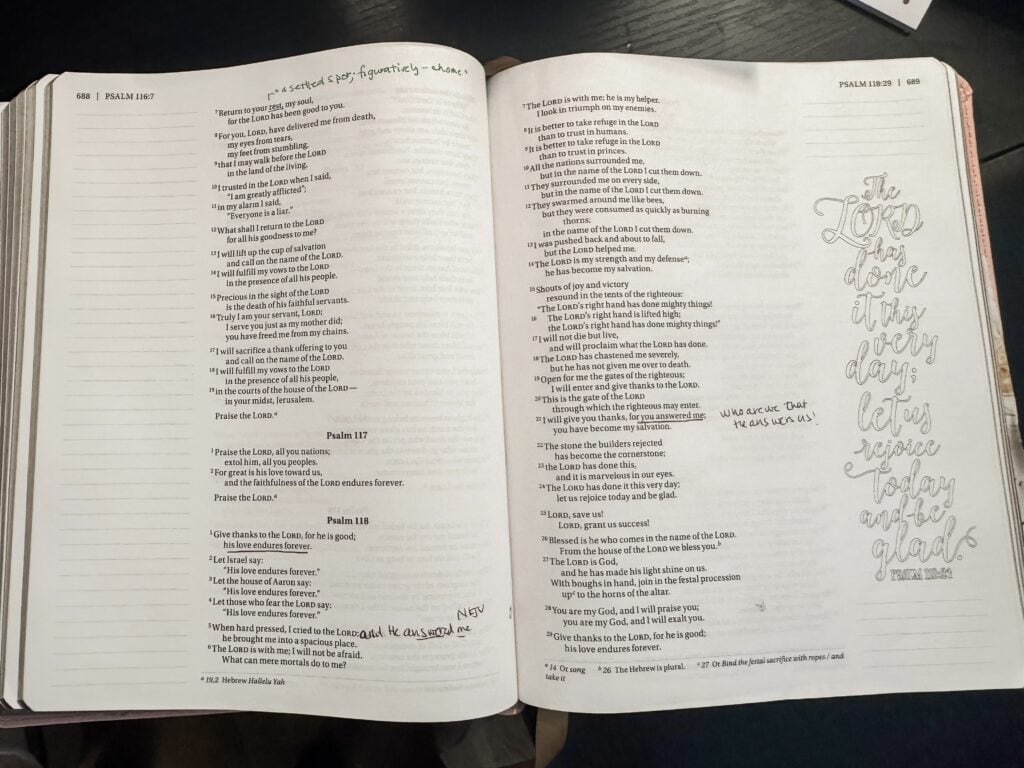 688 | PSALM 116:7
"a settled spot; figuratively - a home"
7 Return to your rest, my soul,
for the LORD has been good to you.
8 For you, LORD, have delivered me from death,
my eyes from tears,
my feet from stumbling,
9 that I may walk before the LORD
in the land of the living.
10 I trusted in the LORD when I said,
"I am greatly afflicted";
11 in my alarm I said,
"Everyone is a liar."
12 What shall I return to the LORD
for all his goodness to me?
13 I will lift up the cup of salvation
and call on the name of the LORD.
14 I will fulfill my vows to the LORD
in the presence of all his people.
15 Precious in the sight of the LORD
is the death of his faithful servants.
16 Truly I am your servant, LORD;
I serve you just as my mother did;
you have freed me from my chains.
17 I will sacrifice a thank offering to you
and call on the name of the LORD.
18 I will fulfill my vows to the LORD
in the presence of all his people,
19 in the courts of the house of the LORD—
in your midst, Jerusalem.
Praise the LORD.a
Psalm 117
1 Praise the LORD, all you nations;
extol him, all you peoples.
2 For great is his love toward us,
and the faithfulness of the LORD endures forever.
Praise the LORD.a
Psalm 118
1 Give thanks to the LORD, for he is good;
his love endures forever.
2 Let Israel say:
"His love endures forever."
3 Let the house of Aaron say:
"His love endures forever."
4 Let those who fear the LORD say:
"His love endures forever."
5 When hard pressed, I cried to the LORD; and He answered me NKJV
he brought me into a spacious place.
6 The LORD is with me; I will not be afraid.
What can mere mortals do to me?
a 19,2 Hebrew Hallelu Yah
PSALM 118:29 | 689
7 The LORD is with me; he is my helper.
I look in triumph on my enemies.
8 It is better to take refuge in the LORD
than to trust in humans.
9 It is better to take refuge in the LORD
than to trust in princes.
10 All the nations surrounded me,
but in the name of the LORD I cut them down.
11 They surrounded me on every side,
but in the name of the LORD I cut them down.
12 They swarmed around me like bees,
but they were consumed as quickly as burning
thorns;
in the name of the LORD I cut them down.
13 I was pushed back and about to fall,
but the LORD helped me.
14 The LORD is my strength and my defensea;
he has become my salvation.
15 Shouts of joy and victory
resound in the tents of the righteous:
"The LORD's right hand has done mighty things!
16 The LORD's right hand is lifted high;
the LORD's right hand has done mighty things!"
17 I will not die but live,
and will proclaim what the LORD has done.
18 The LORD has chastened me severely,
but he has not given me over to death.
19 Open for me the gates of the righteous;
I will enter and give thanks to the LORD.
20 This is the gate of the LORD
through which the righteous may enter.
21 I will give you thanks, for you answered me;
you have become my salvation.
who are we that
He answers us!
22 The stone the builders rejected
has become the cornerstone;
23 the LORD has done this,
and it is marvelous in our eyes.
24 The LORD has done it this very day;
let us rejoice today and be glad.
25 LORD, save us!
LORD, grant us success!
26 Blessed is he who comes in the name of the LORD.
From the house of the LORD we bless you.b
27 The LORD is God,
and he has made his light shine on us.
With boughs in hand, join in the festal procession
upc to the horns of the altar.
28 You are my God, and I will praise you;
you are my God, and I will exalt you.
29 Give thanks to the LORD, for he is good;
his love endures forever.
a 14 Or song b 26 The Hebrew is plural. c 27 Or Bind the festal sacrifice with ropes / and
take it
The
LORD
has
done
it this
very
day;
let us
rejoice
today
and be
glad.
PSALM 118:24